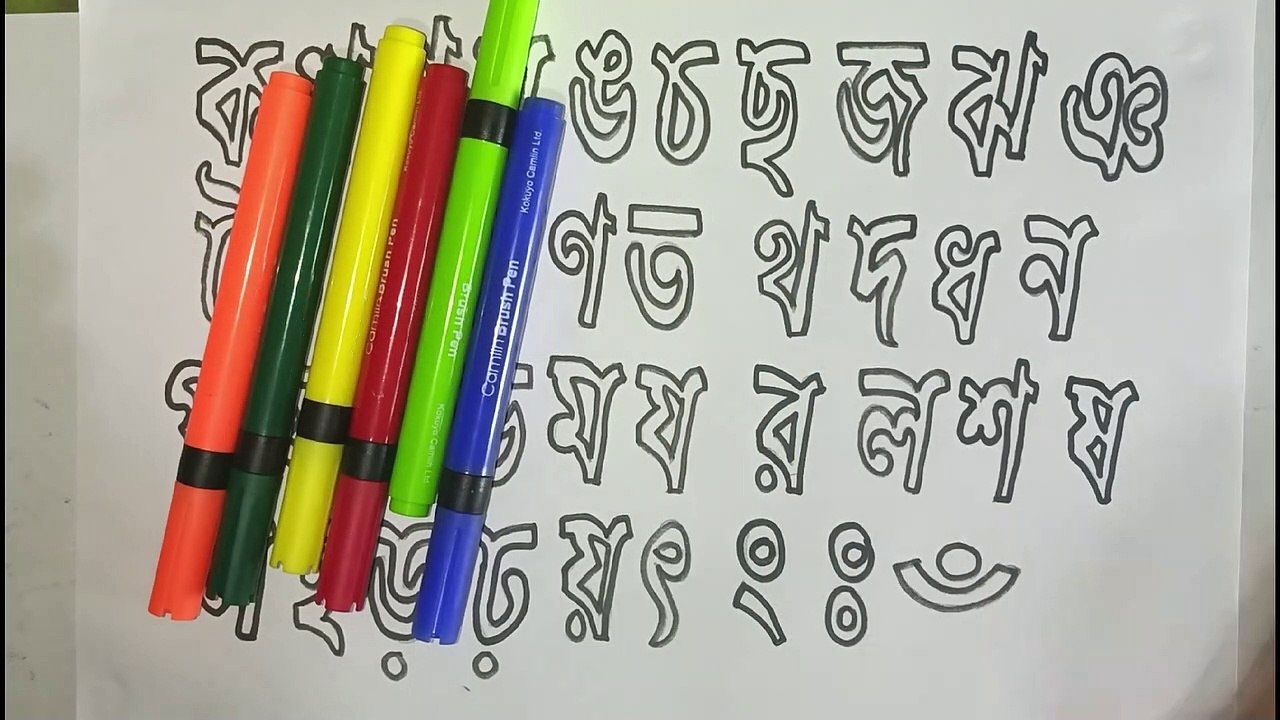 ক ঙ চ ছ জ ঝ ঞ
ণ ত থ দ ধ ন
ম য র ল শ ষ
ড় ঢ় য় ৎ ং ঃ ঁ
Camlin Brush Pen
Kokuyo Camlin Ltd.
Camlin Brush Pen
Brush Pen
Kokuyo Camlin Ltd